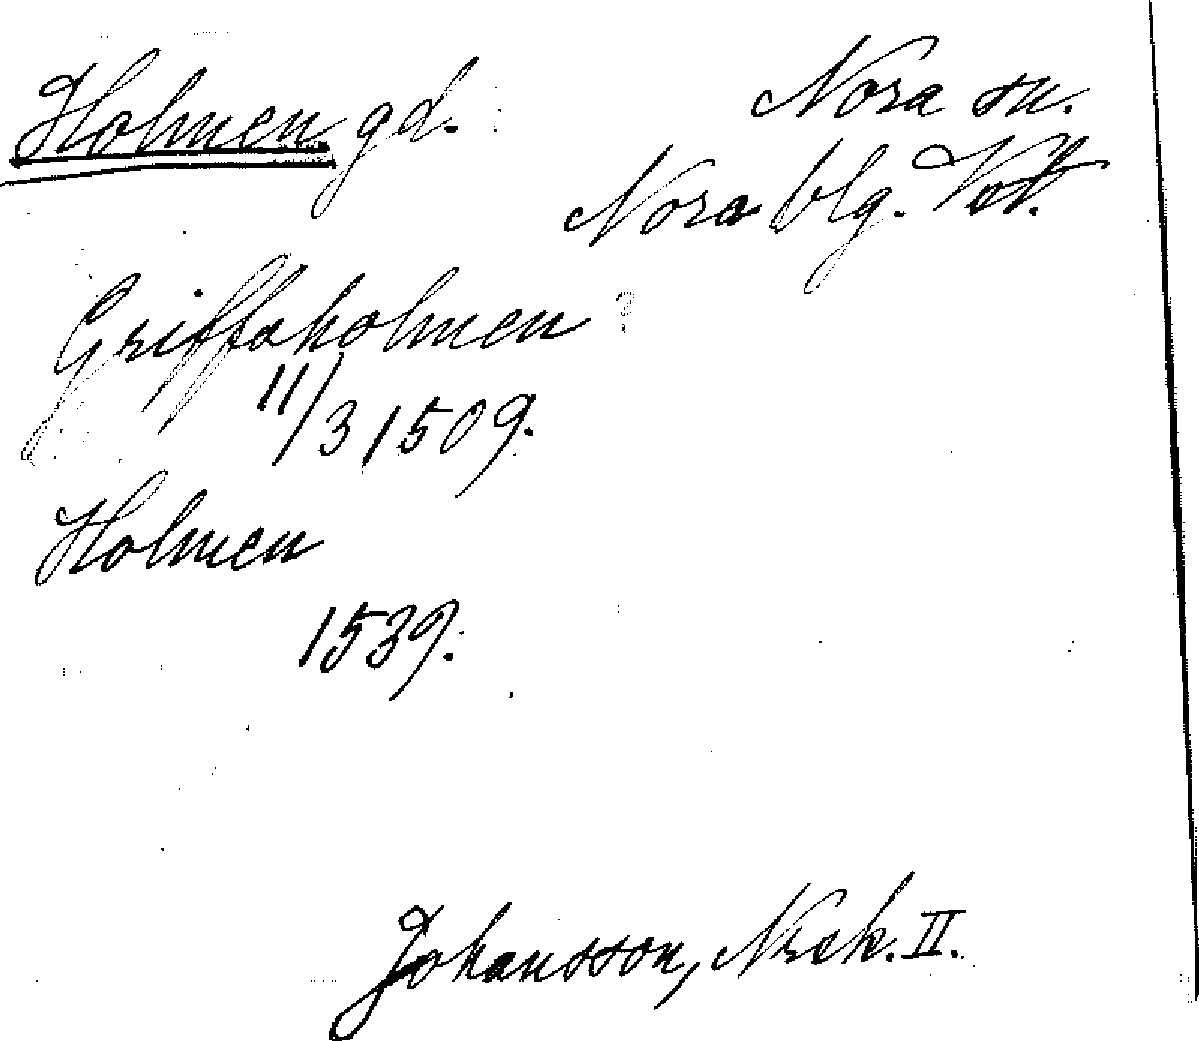 Holmen gd.
Nora sn.
Nora blg. Vstm.
Griffaholmen ?
11/3 1509.
Holmen
1539.
Johansson, Nrsk. II.